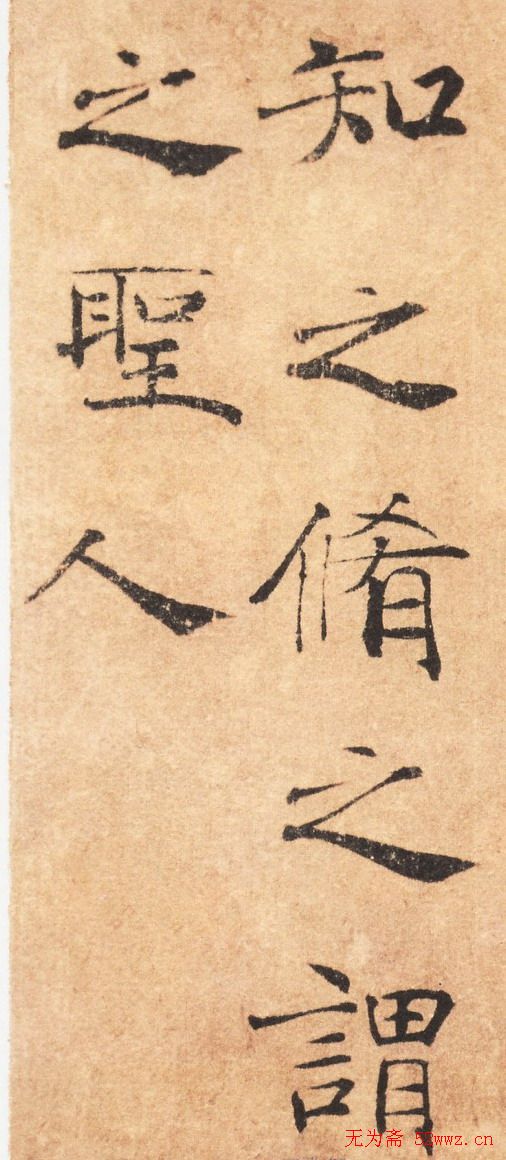 知之脩之謂
之聖人
无为斋 52wwz.cn